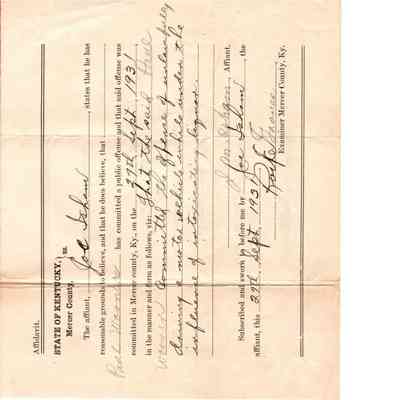 Affidavit.
STATE OF KENTUCKY, } ss.
Mercer County,
The affiant, Joe Isham, states that he has
reasonable grounds to believe, and that he does believe, that
Paul Warner has committed a public offense and that said offense was
committed in Mercer county, Ky., on the 27th Sept. 1931
in the manner and form as follows, viz: That the said Paul
Warner committed the offense of unlawfully
driving a motor vehicle while under the
influence of intoxicating liquor.
Affiant.
Subscribed and sworn to before me by Joe Isham, the
affiant, this 29th Sept. 1931
Examiner Mercer County, Ky.